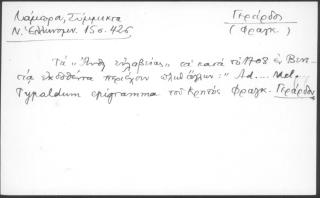 Λάμπρου, Σύμμικτα
Γεράρδος
Ν. Ἑλληνομν. 15 σ. 426
(Φραγκ.)
Τὰ "Ἄνθη εὐλαβείας" τὰ κατὰ τὸ 1708 ἐν Βενε-
τίᾳ ἐκδοθέντα περιέχουν πλὴν ἄλλων: "Ad.... Mel.
Typaldum epigramma τοῦ Κρητὸς Φραγκ. Γεράρδου